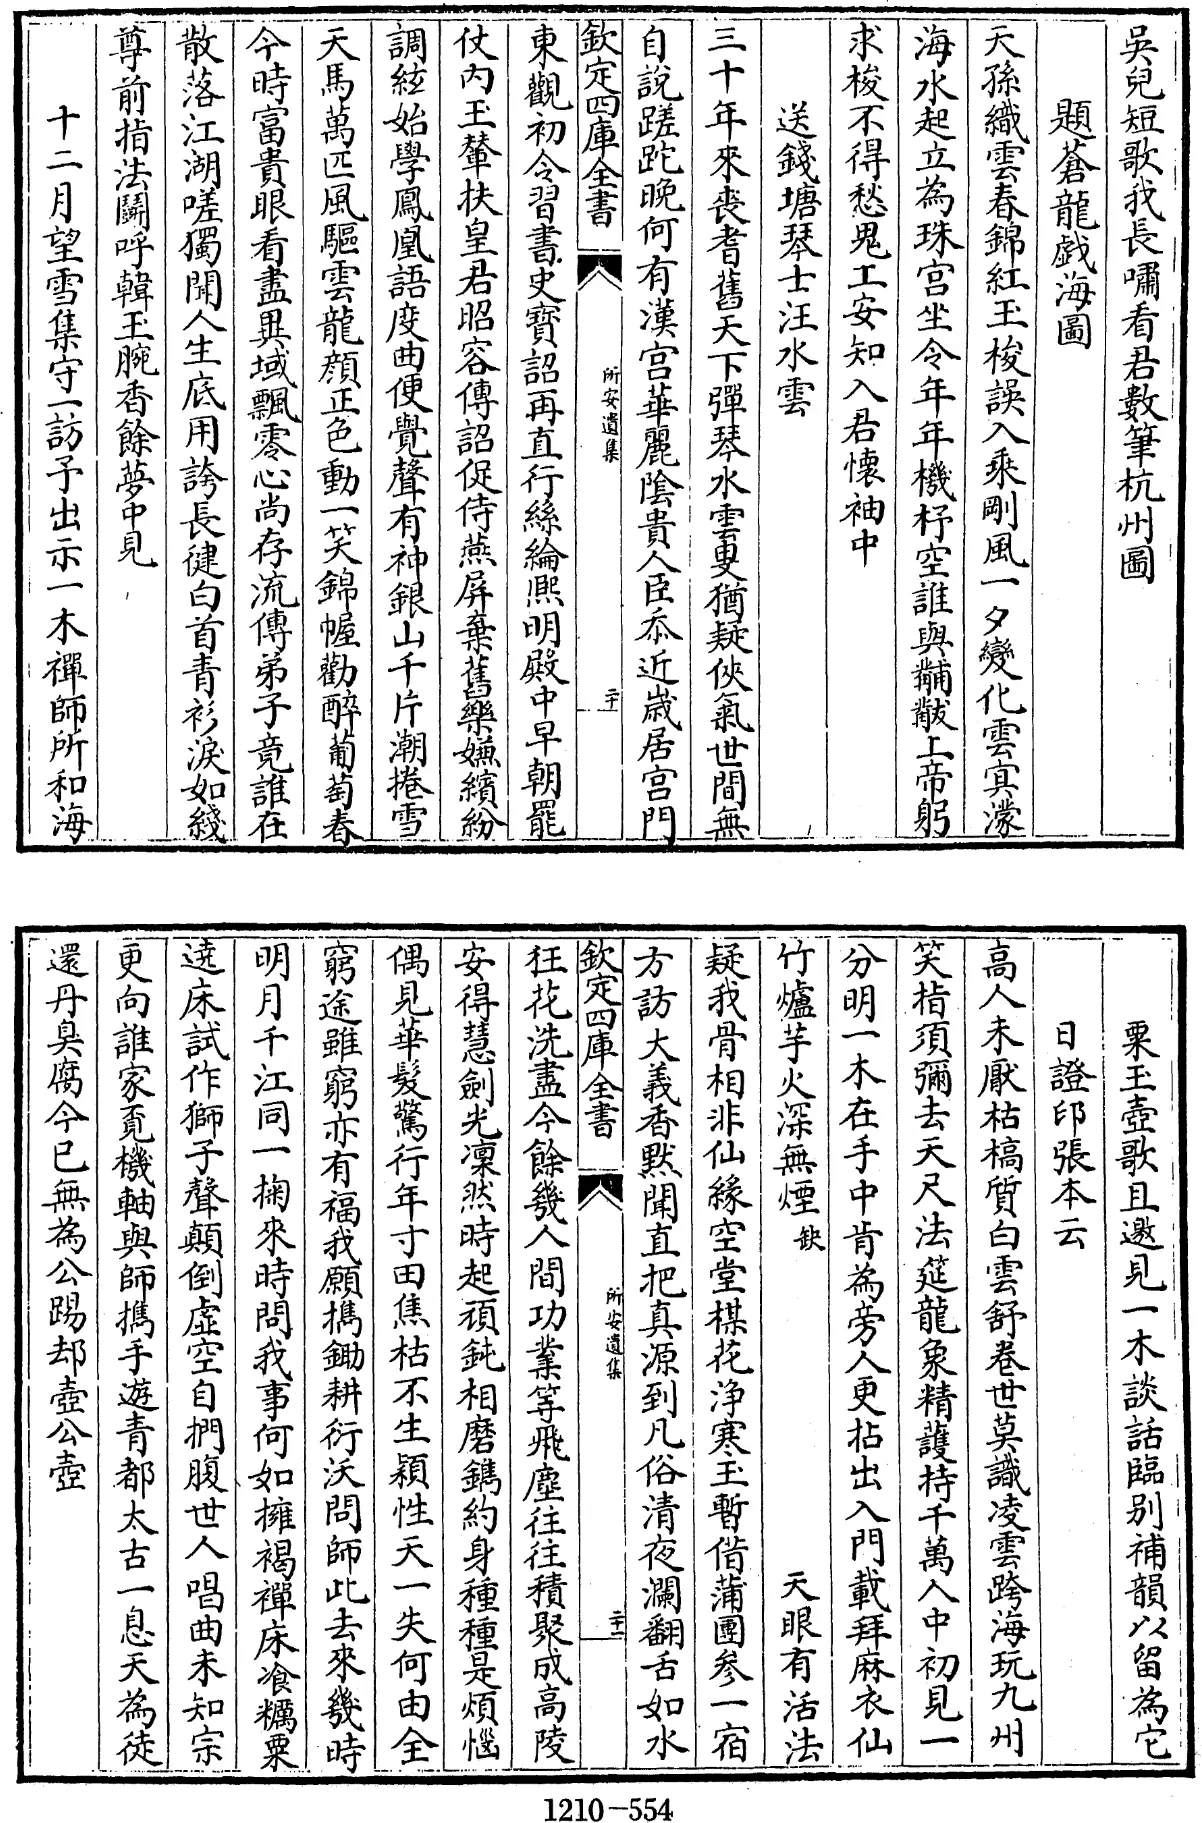 吳兒短歌我長嘯看君數筆杭州圖
題蒼龍戲海圖
天孫織雲春錦紅玉梭誤入乘剛風一夕變化雲㝠濛
海水起立為珠宫坐令年年機杼空誰與黼黻上帝躬
求梭不得愁鬼工安知入君懷袖中
送錢塘琴士汪水雲
三十年來喪耆舊天下彈琴水雲叟猶疑俠氣世間無
自說蹉跎晚何有漢宫華麗陰貴人臣忝近嵗居宫門
欽定四庫全書
所安遺集
二十
東觀初令習書史寶詔再直行絲綸熈明殿中早朝罷
仗内玉輦扶皇君昭容傳詔促侍燕屏棄舊樂嫌繽紛
調絃始學鳳凰語度曲便覺聲有神銀山千片潮捲雪
天馬萬匹風驅雲龍顔正色動一笑錦幄勸醉葡萄春
今時富貴眼看盡異域飄零心尚存流傳弟子竟誰在
散落江湖嗟獨聞人生底用誇長健白首青衫淚如綫
尊前指法鬭呼韓玉腕香餘夢中見
十二月望雪集守一訪予出示一木禪師所和海
粟玉壺歌且邀見一木談話臨别補韻以留為它
日證印張本云
高人未厭枯槁質白雲舒卷世莫識凌雲跨海玩九州
笑指須彌去天尺法筵龍象精護持千萬人中初見一
分明一木在手中肯為旁人更拈出入門載拜麻衣仙
竹爐芋火深無煙缺 天眼有活法
疑我骨相非仙緣空堂楳花浄寒玉暫借蒲團参一宿
方訪大義香黙聞直把真源到凡俗清夜瀾翻舌如水
欽定四庫全書
所安遺集
二十一
狂花洗盡今餘幾人間功業等飛塵往往積聚成高陵
安得慧劍光凜然時起頑鈍相磨鐫約身種種是煩惱
偶見華髮驚行年寸田焦枯不生穎性天一失何由全
窮途雖窮亦有福我願攜鋤耕衍沃問師此去來幾時
明月千江同一掬來時問我事何如擁褐禪床飡糲粟
遶床試作獅子聲顛倒虛空自捫腹世人唱曲未知宗
更向誰家覓機軸與師攜手遊青都太古一息天為徒
還丹臭腐今已無為公踢却壺公壺
1210-554